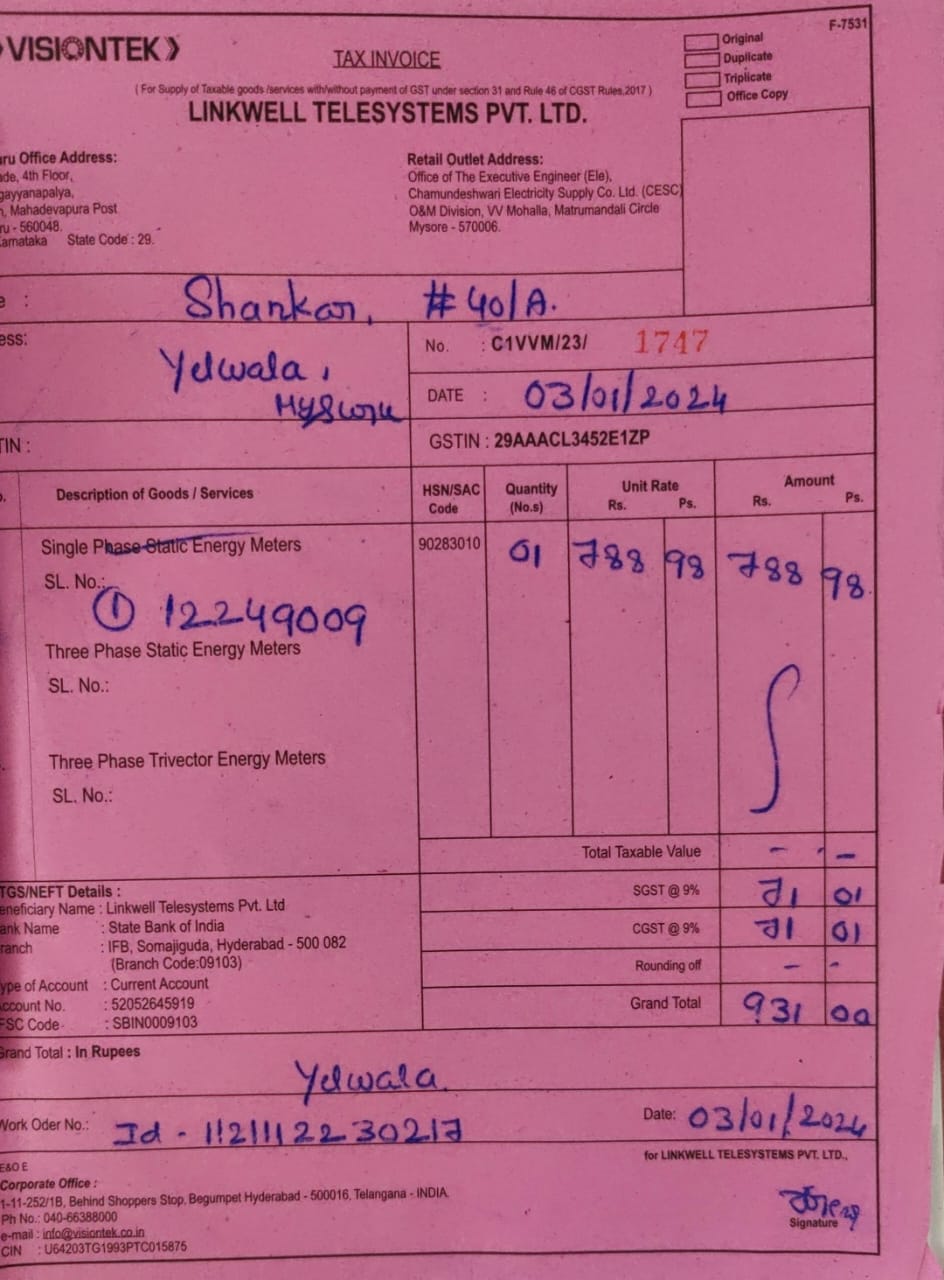 VISIONTEK
F-7531
TAX INVOICE
Original
Duplicate
Triplicate
Office Copy
( For Supply of Taxable goods /services with/without payment of GST under section 31 and Rule 46 of CGST Rules,2017 )
LINKWELL TELESYSTEMS PVT. LTD.
ru Office Address:
de, 4th Floor,
gayyanapalya,
, Mahadevapura Post
ru - 560048.
arnataka State Code : 29.
Retail Outlet Address:
Office of The Executive Engineer (Ele),
Chamundeshwari Electricity Supply Co. Ltd. (CESC)
O&M Division, VV Mohalla, Matrumandali Circle
Mysore - 570006.
e : Shankar, #40/A.
ess: Yelwala,
Mysuru
No. : C1VVM/23/ 1747
DATE : 03/01/2024
TIN :
GSTIN : 29AAACL3452E1ZP
Description of Goods / Services HSN/SAC Code Quantity (No.s) Unit Rate Rs. Ps. Amount Rs. Ps.
Single Phase Static Energy Meters 90283010 01 788 98 788 98
SL. No.:
① 12249009
Three Phase Static Energy Meters
SL. No.:
Three Phase Trivector Energy Meters
SL. No.:
Total Taxable Value - -
SGST @ 9% 71 01
CGST @ 9% 71 01
Rounding off - -
Grand Total 931 00
TGS/NEFT Details :
eneficiary Name : Linkwell Telesystems Pvt. Ltd
ank Name : State Bank of India
ranch : IFB, Somajiguda, Hyderabad - 500 082
(Branch Code:09103)
ype of Account : Current Account
ccount No. : 52052645919
FSC Code : SBIN0009103
Grand Total : In Rupees
Yelwala.
Work Oder No.: Id - 1121112230217
Date: 03/01/2024
for LINKWELL TELESYSTEMS PVT. LTD.,
E&O E
Corporate Office :
1-11-252/1B, Behind Shoppers Stop, Begumpet Hyderabad - 500016, Telangana - INDIA.
Ph No.: 040-66388000
e-mail : info@visiontek.co.in
CIN : U64203TG1993PTC015875
Signature